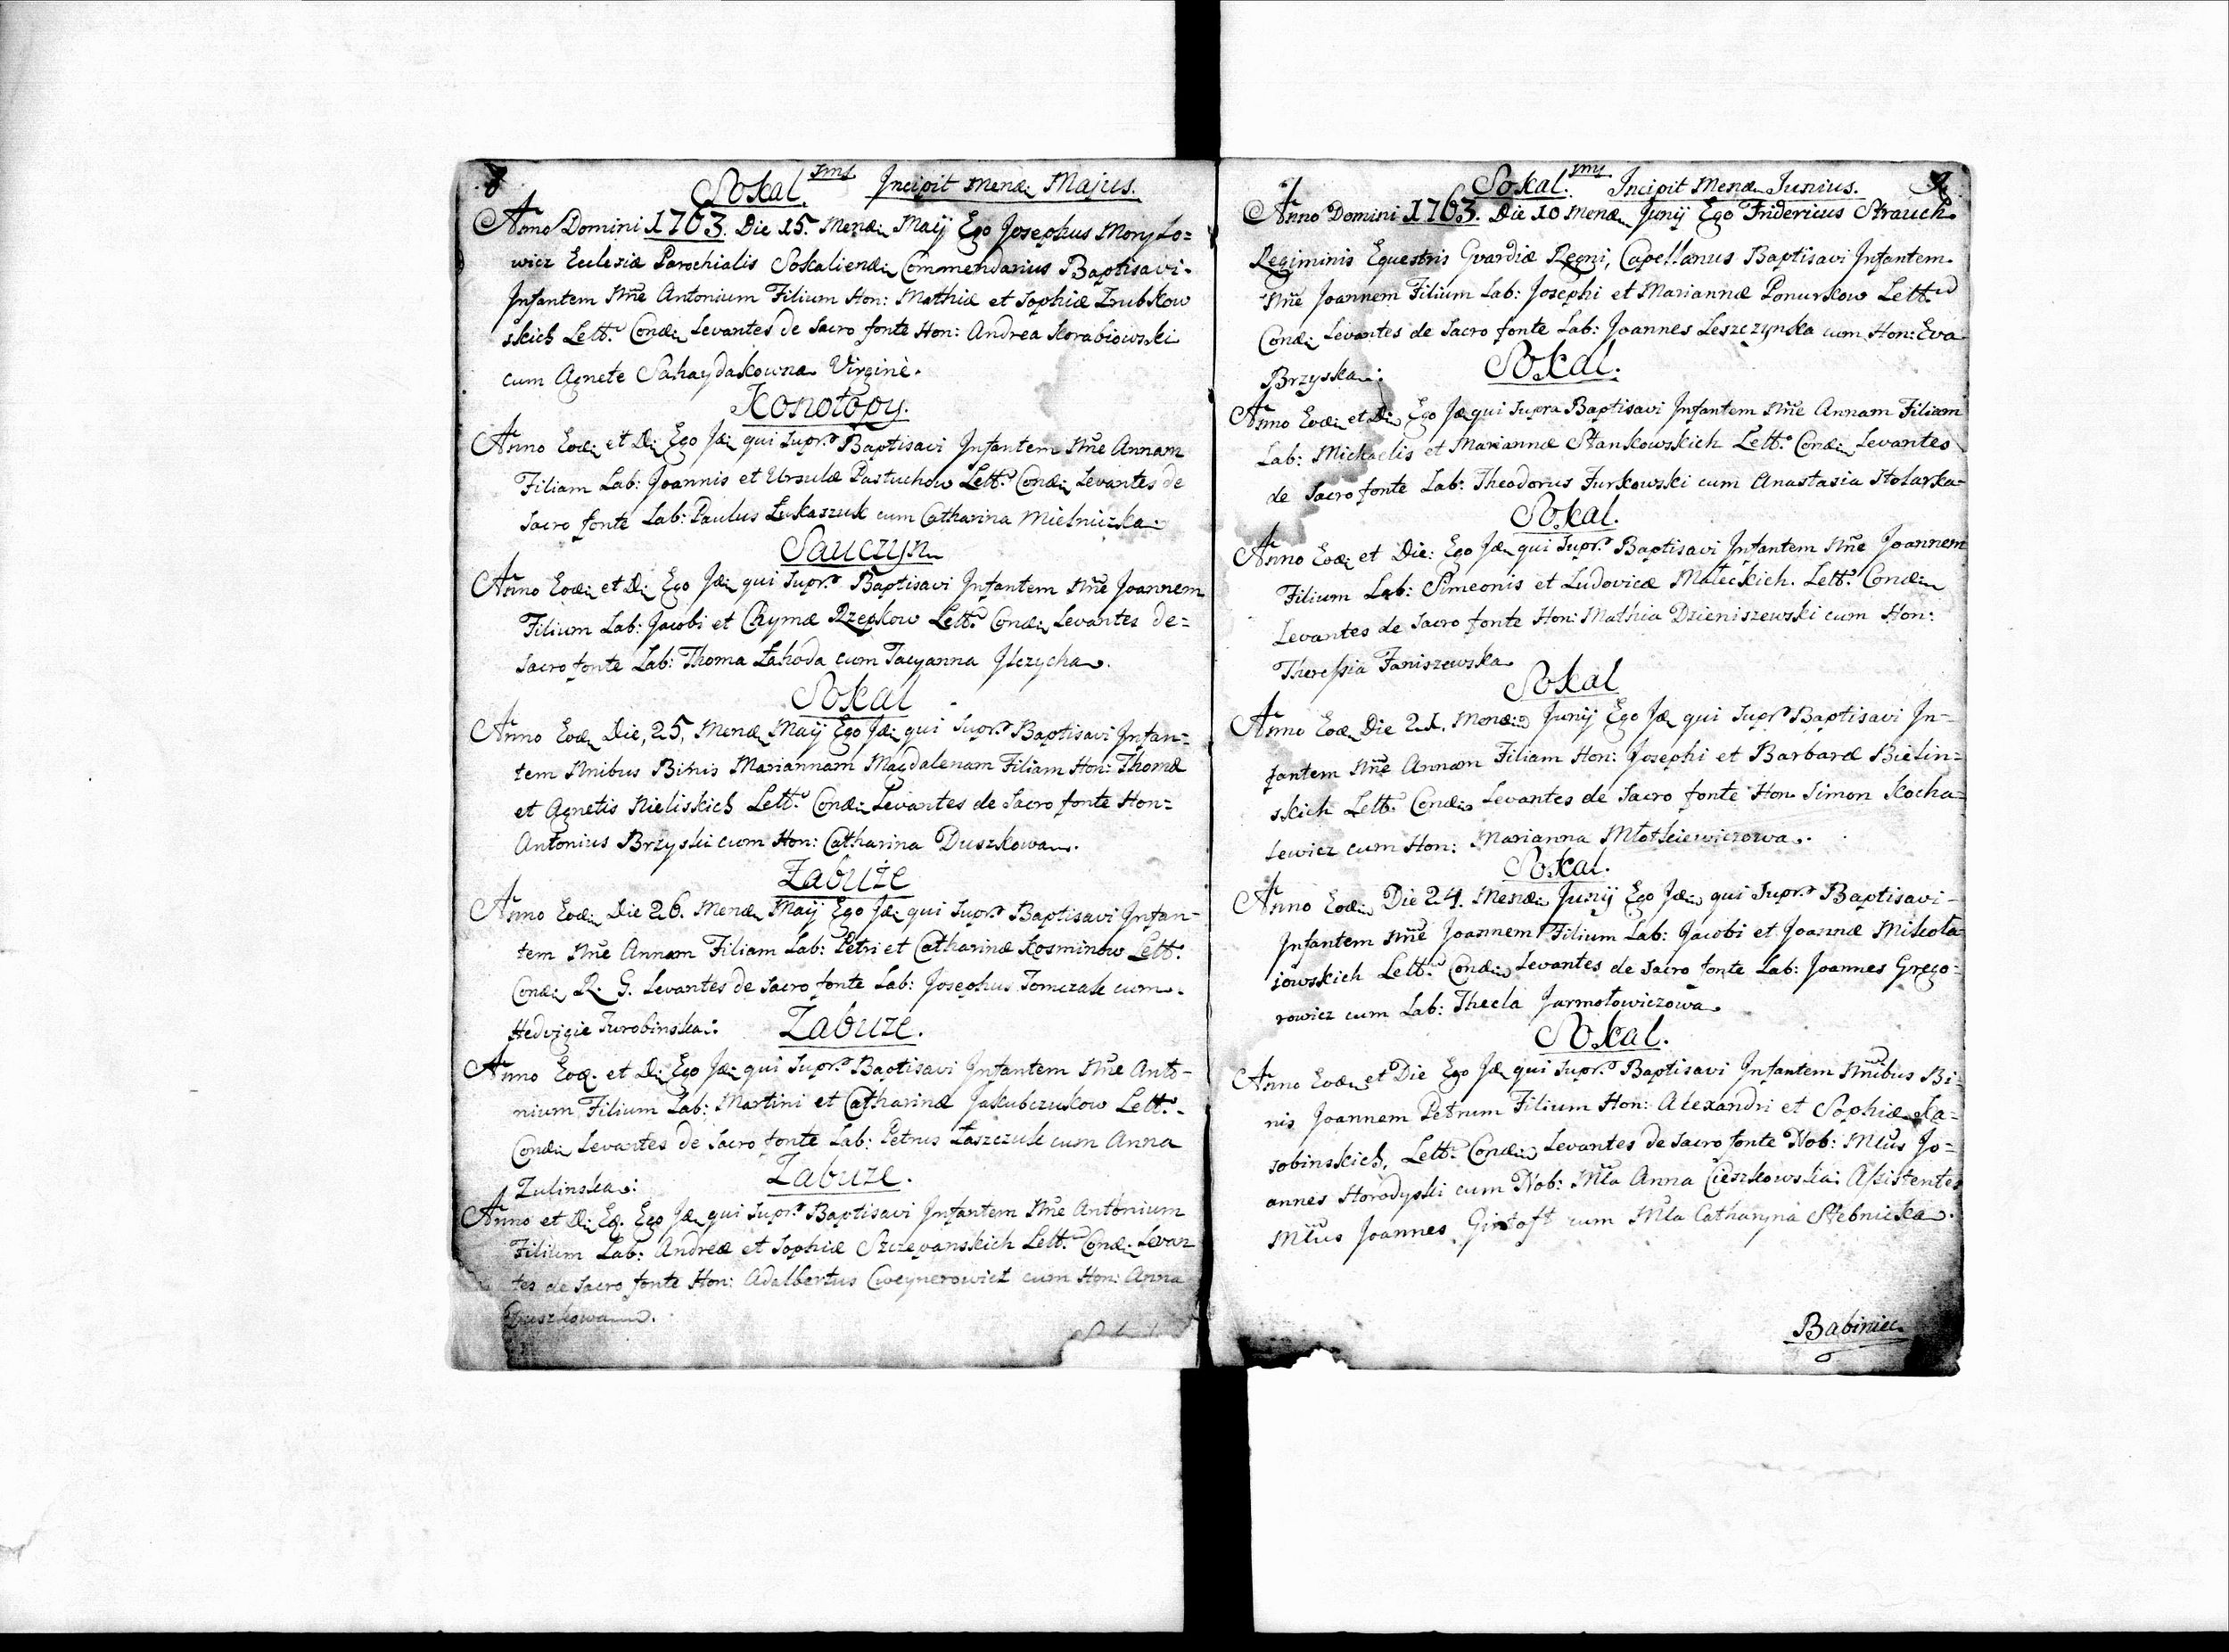 8
Sokal. Incipit Mens: Majus.
Anno Domini 1763. Die 15. Mens: Maij Ego Josephus Morylo=
wicz Eclesiæ Parochialis Sokaliens: Commendarius Baptisavi
Infantem Nñe Antonium Filium Hon: Mathiæ et Sophiæ Zubkow
skich Letto Cond: Levantes de Sacro fonte Hon: Andrea Korabiowski
cum Agnete Sahaydakowna Virginè.
Konotopy.
Anno Eod: et D: Ego Id: qui supra Baptisavi Infantem Nñe Annam
Filiam Lab: Joannis et Ursulæ Pastuchow Letto Cond: Levantes de
Sacro fonte Lab: Paulus Łukaszuk cum Catharina Mielniczka:
Sauczyn
Anno Eod: et D: Ego Id: qui supra Baptisavi Infantem Nñe Joannem
Filium Lab: Jacobi et Chymæ Rzepkow Letto Cond: Levantes de=
Sacro fonte Lab: Thoma Łahoda cum Tacyanna Ilczycha.
Sokal
Anno Eod: Die, 25, Mens: Maij Ego Id: qui supra Baptisavi Infan=
tem Nnibus Binis Mariannam Magdalenam Filiam Hon: Thomæ
et Agnetis Nieliskich Letto Cond: Levantes de Sacro fonte Hon=
Antonius Brzyski cum Hon: Catharina Duszkowa.
Zabuże
Anno Eod: Die 26. Mens: Maij Ego Id: qui supra Baptisavi Infan-
tem Nñe Annam Filiam Lab: Petri et Catharinæ Kosminow Letto
Cond: R. G. Levantes de Sacro fonte Lab: Josephus Tomczak cum
Hedvigie Turobinska: Zabuze.
Anno Eod. et D: Ego Id: qui supra Baptisavi Infantem Nñe Anto-
nium Filium Lab: Martini et Catharinæ Jakubczukow Letto
Cond: Levantes de Sacro fonte Lab: Petrus Łaszczuk cum Anna
Zulinska: Zabuze.
Anno et D: Eq. Ego Id: qui supra Baptisavi Infantem Nñe Antonium
Filium Lab: Andreæ et Sophiæ Szczepanskich Letto Cond: Levan
tes de Sacro fonte Hon: Adalbertus Cweynerowicz cum Hon: Anna
Duszkowa.
Sokal. Incipit Mens: Junius.
Anno Domini 1763. Die 10 Mens: Junij Ego Fridericus Strauch
Regiminis Equestris Gvardiæ Regni, Capellanus Baptisavi Infantem
Nñe Joannem Filium Lab: Josephi et Mariannæ Ponurkow Letto
Cond: Levantes de Sacro fonte Lab: Joannes Leszczynska cum Hon: Eva
Brzyska: Sokal.
Anno Eod: et D: Ego Id qui supra Baptisavi Infantem Nñe Annam Filiam
Lab: Michaelis et Mariannæ Stankowskich Letto Cond: Levantes
de Sacro fonte Lab: Theodorus Furkowski cum Anastasia Stolarka
Sokal.
Anno Eod: et Die: Ego Id: qui supra Baptisavi Infantem Nñe Joannem
Filium Lab: Simeonis et Ludovicæ Małeckich. Letto Cond:
Levantes de Sacro fonte Hon: Mathia Dzieniszewski cum Hon:
Theressia Janiszewska
Sokal
Anno Eod: Die 21. Mens: Junij Ego Id: qui supra Baptisavi In=
fantem Nñe Annam Filiam Hon: Josephi et Barbaræ Bielin=
skich Letto Cond: Levantes de Sacro fonte Hon Simon Kocha=
lewicz cum Hon: Marianna Młotkiewiczowa.
Sokal.
Anno Eod: Die 24. Mens: Junij Ego Id: qui supra Baptisavi-
Infantem Nñe Joannem Filium Lab: Jacobi et Joannæ Mikoła
iowskich Letto Cond: Levantes de Sacro fonte Lab: Joannes Grego=
rowicz cum Lab: Thecla Jarmołowiczowa.
Sokal.
Anno Eod: et Die Ego Id: qui supra Baptisavi Infantem Nnibus Bi=
nis Joannem Petrum Filium Hon: Alexandri et Sophiæ Ja=
sobinskich, Letto Cond: Levantes de Sacro fonte Nob: Mlus Jo=
annes Horodyski cum Nob: Mla Anna Cieszkowska: Assistentes
Mlus Joannes cum Mla Catharyna Stebnicka.
Babiniec